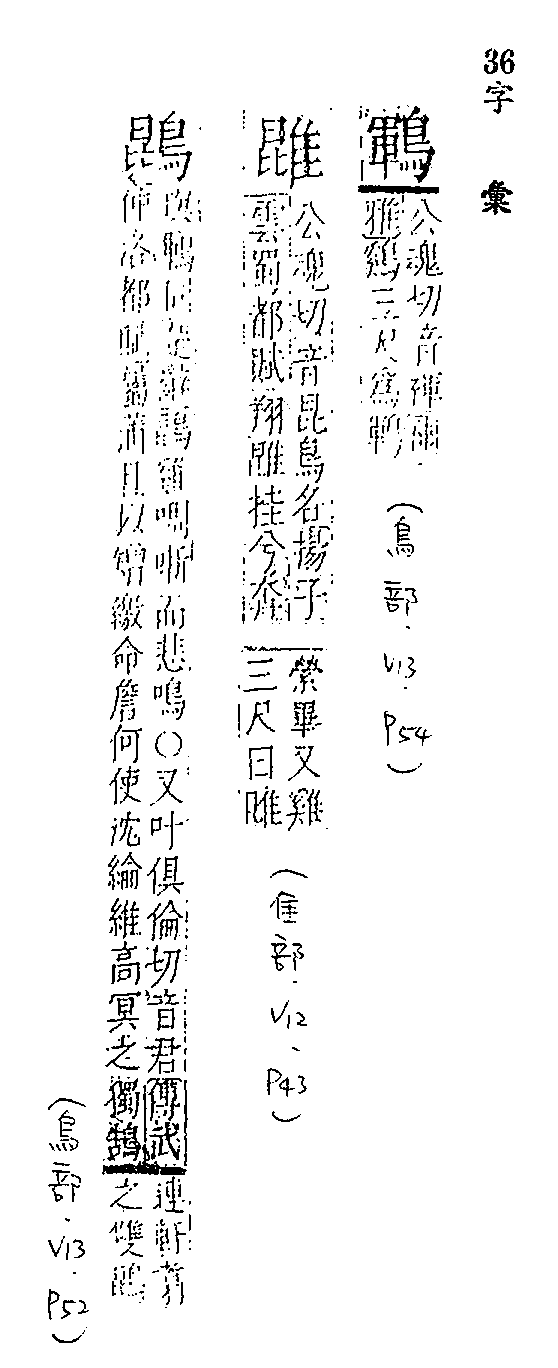 36字 彙
鶤
公魂切音褌爾
雅鷄三尺爲鶤
(鳥部.V13.P54)
公魂切音昆鳥名揚子
雲蜀都賦翔挂兮奎
縈畢又雞
三尺曰
(隹部.V12.P43)
鵾
與鶤同楚辭鵾雞啁哳而悲鳴○又叶俱倫切音君傅武
仲洛都賦蒲且以矰繳命詹何使沈綸維高冥之獨鵠
連軒翥
之雙鵾
(鳥部.V13.P52)